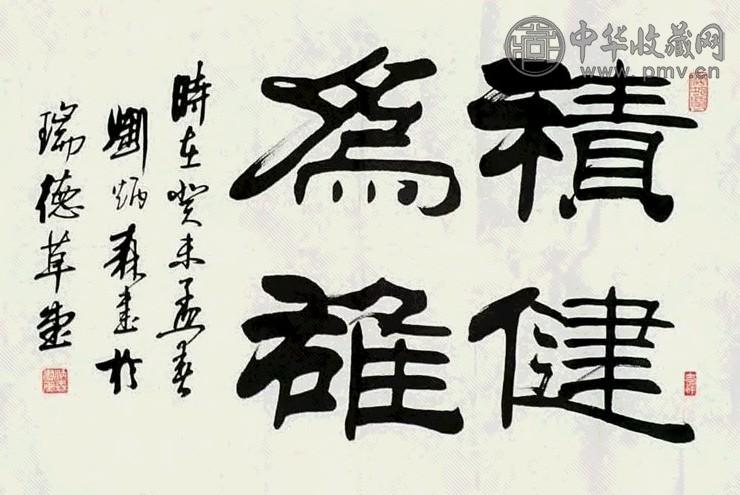 積健
為雄
時在癸未孟春
劉炳森書於
瑞德草堂
中华收藏网
www.pmv.cn